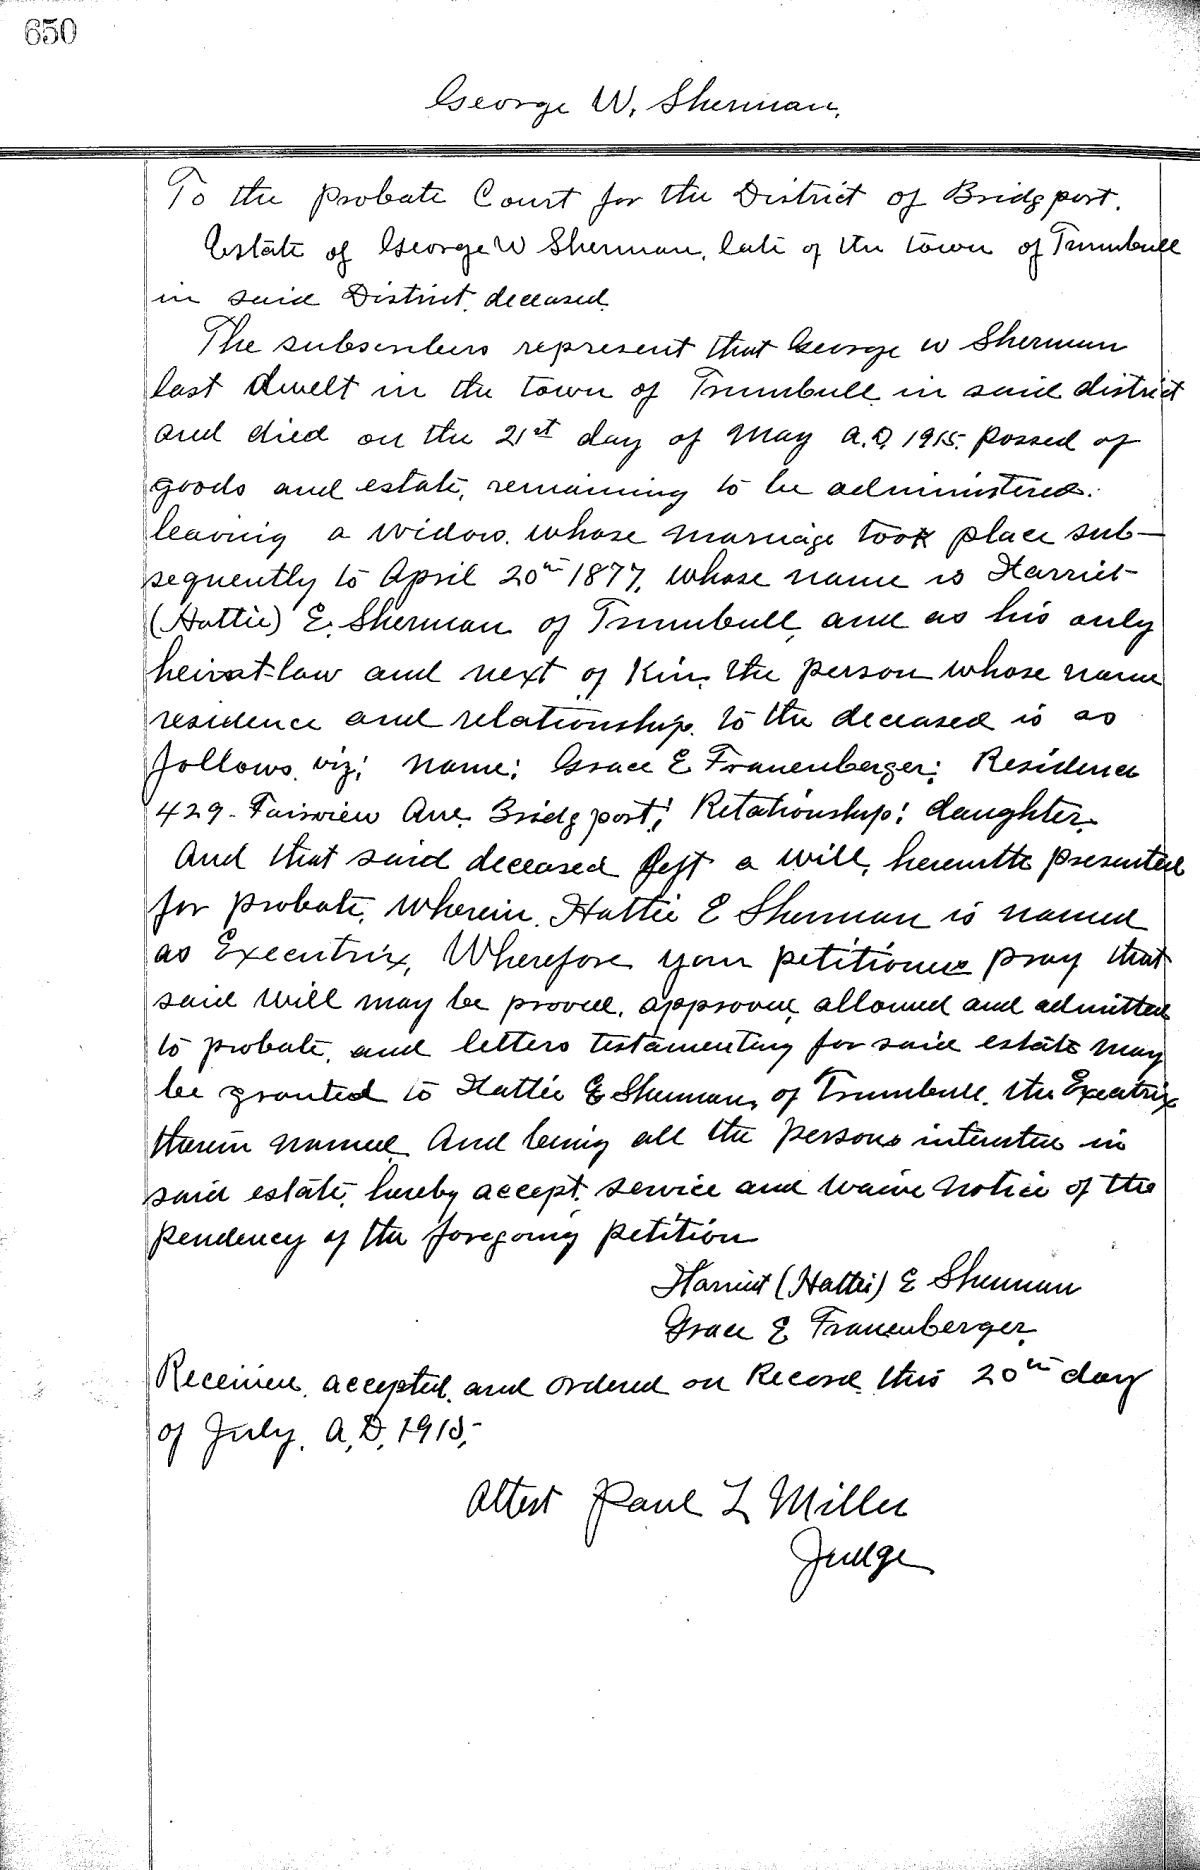 650
George W. Sherman.
To the Probate Court for the District of Bridgport.
Estate of George W Sherman, late of the town of Trumbull
in said District, deceased.
The subscribers represent that George W Sherman
last dwelt in the town of Trumbull in said district
and died on the 21st day of May A.D. 1915. possed of
goods and estate, remaining to be administered.
leaving a widow. whose marriage took place sub-
sequently to April 20th 1877, whose name is Harriet
(Hattie) E. Sherman of Trumbull, and as his only
heirat-law and next of Kin, the person whose name
residence and relationship to the deceased is as
follows, viz; name; Grace E Frauenberger; Residence
429- Fairview Ave. Bridgport; Relationship; daughter.
And that said deceased left a will, herewith presented
for probate, wherein Hattie E Sherman is named
as Executrix, Wherefore your petitioners pray that
said will may be proved, approved, allowed and admitted
to probate, and letters testamentary for said estate may
be granted to Hattie E Sherman, of Trumbull, the Executrix
therein named. And being all the persons interested in
said estate, hereby accept service and waive notice of the
pendency of the foregoing petition
Harriet (Hattie) E Sherman
Grace E Frauenberger.
Received, accepted, and ordered on Record this 20th day
of July, A.D. 1915.
Attest Paul L Miller
Judge